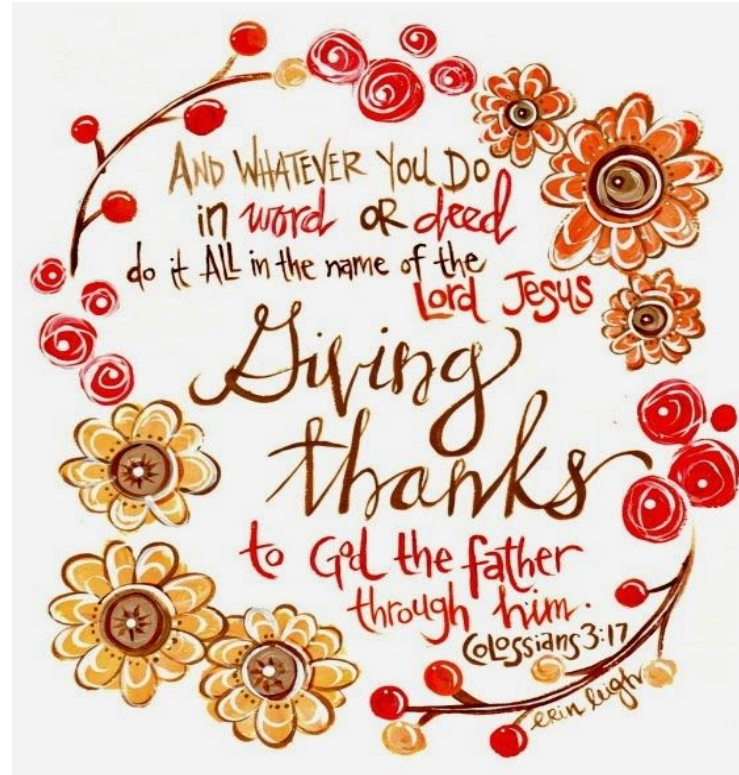 AND WHATEVER YOU DO
in word OR deed
do it ALL in the name of the
Lord Jesus
Giving
thanks
to God the father
through him.
Colossians 3:17
erin leigh